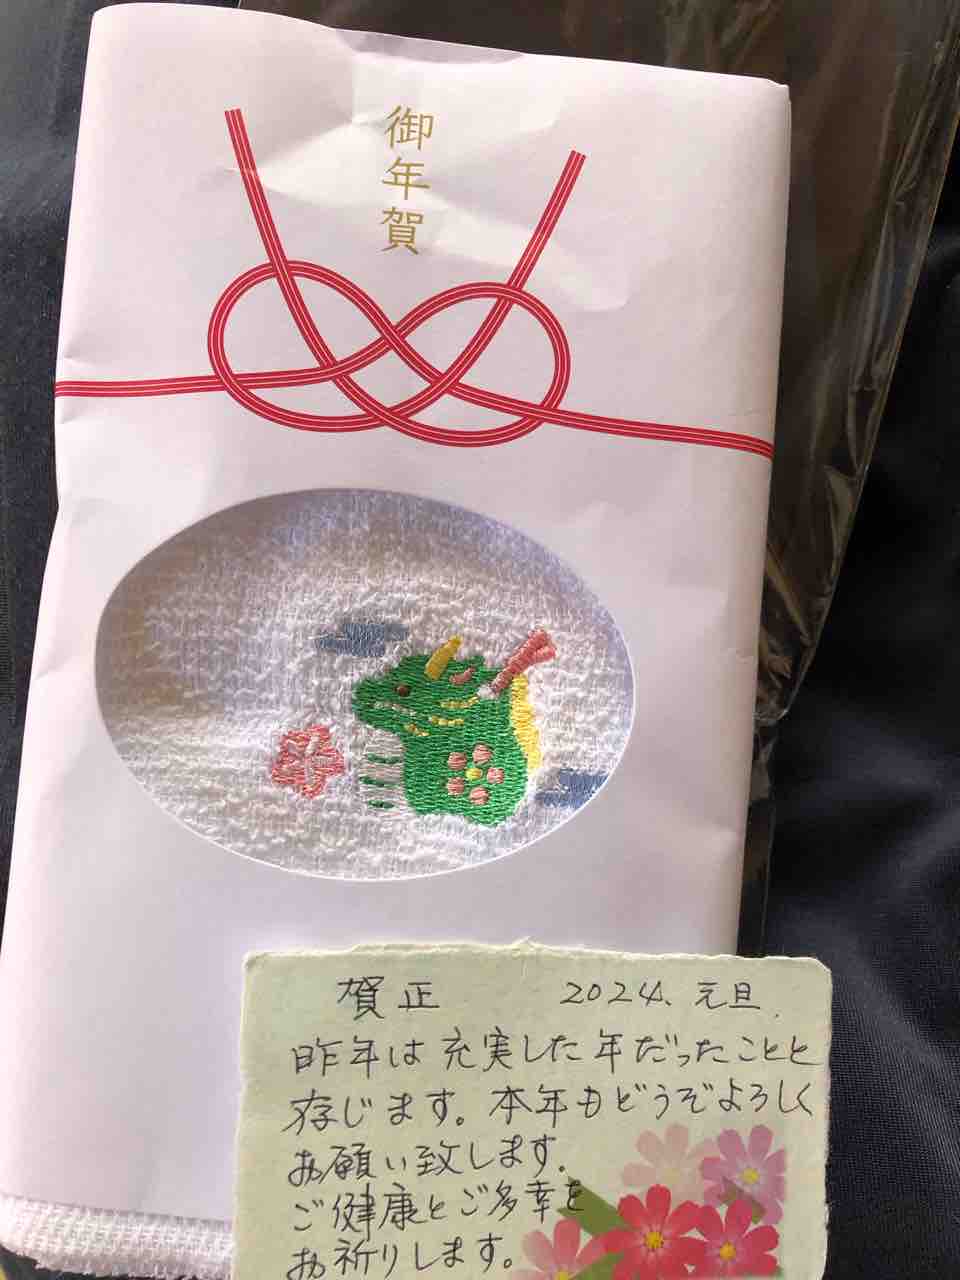 御年賀
賀正 2024、元旦.
昨年は充実した年だったことと
存じます。本年もどうぞよろしく
お願い致します。
ご健康とご多幸を
お祈りします。